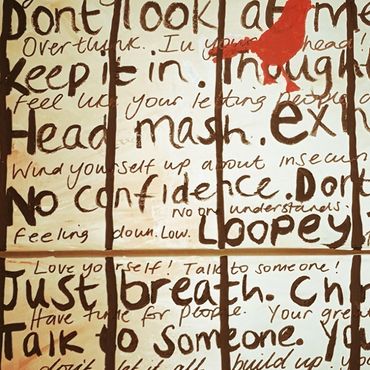 Dont look at me
Over think. In your head!
Keep it in. Thought
Feel like your letting people
Head mash. Ex
Wind yourself up about insecur
No confidence. Dont
No one understands.
feeling down. Low. Loopey
Love yourself! Talk to someone!
Just breath. Ch
Have time for people. Your grea
Talk to someone. Yo
don't let it all build up. yo